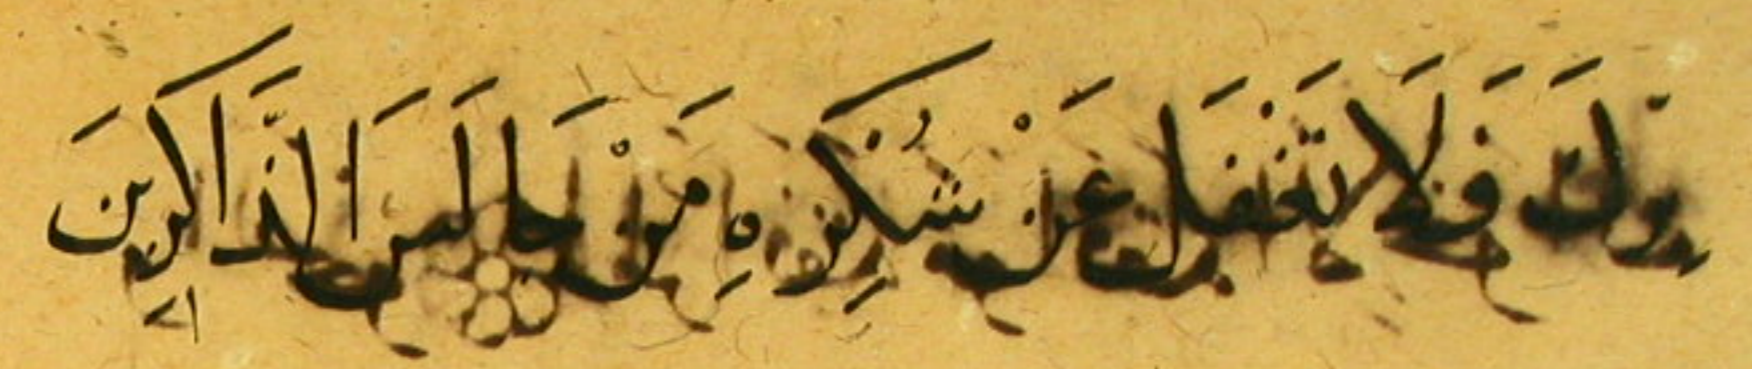 فَلَا تَغْفَلَ عَنْ شُكْرِهِ مَنْ جَالَسَ الذَّاكِرِينَ